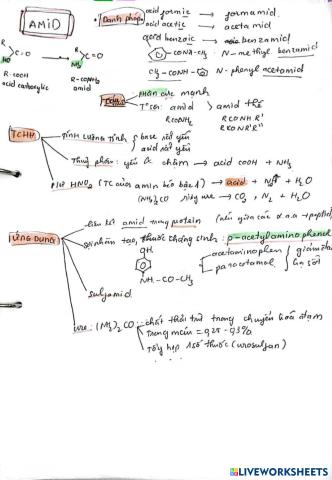 AMiD
Danh pháp
acid formic → formamid.
acid acetic → acetamid
acid benzoic → benzamid
-CONH-CH₃ : N-methyl benzamid
CH₃-CONH- : N-phenyl acetamid
R C=O → R C=O
HO NH₂
R-COOH R-CONH₂
acid carboxylic amid
phân cực mạnh
T°sôi: amid > amid thế
RCONH₂ RCONH.R'
RCONR'R''
TCHH
Tính lưỡng tính base rất yếu
acid rất yếu
Thuỷ phân: yếu & chậm → acid COOH + NH₃
HNO₂ (TC của amin béo bậc 1) → acid + N₂ + H₂O
(NH₂)₂CO → CO₂, N₂ + H₂O
ỨNG DỤNG
liên kết amid trong protein
thuốc : p-acetylaminophenol
OH
NH-CO-CH₃
acetaminophen
paracetamol
hạ sốt
sulfamid
urê: (NH₂)₂CO: chất thải trừ trong chuyển hoá đạm
trong máu
Tổng hợp 1 số thuốc
LIVEWORKSHEETS